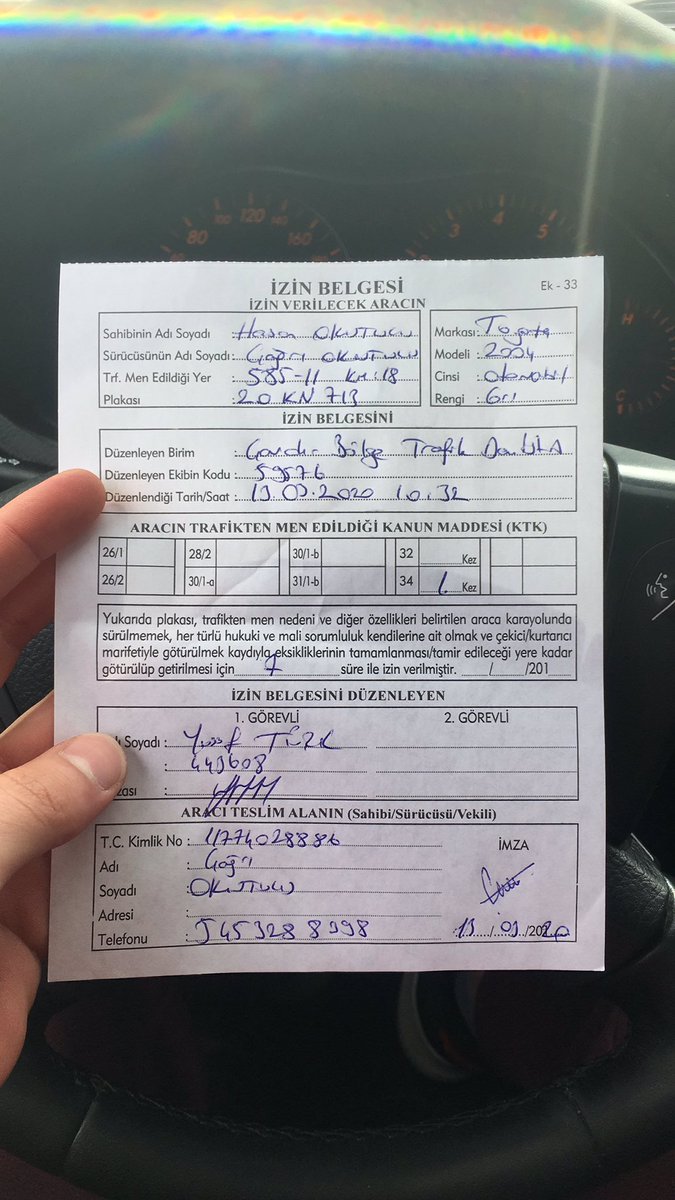 İZİN BELGESİ
Ek - 33
İZİN VERİLECEK ARACIN
Sahibinin Adı Soyadı : Hasan OKUTUCU
Sürücüsünün Adı Soyadı: Çağrı OKUTUCU
Trf. Men Edildiği Yer : 585-11 Km:18
Plakası : 20 KN 713
Markası: Toyota
Modeli : 2004
Cinsi : Otomobil
Rengi : Gri
İZİN BELGESİNİ
Düzenleyen Birim : Bölge Trafik
Düzenleyen Ekibin Kodu : 59576
Düzenlendiği Tarih/Saat : 19.09.2020 10.32
ARACIN TRAFİKTEN MEN EDİLDİĞİ KANUN MADDESİ (KTK)
26/1 28/2 30/1-b 32 Kez
26/2 30/1-a 31/1-b 34 1 Kez
Yukarıda plakası, trafikten men nedeni ve diğer özellikleri belirtilen araca karayolunda
sürülmemek, her türlü hukuki ve mali sorumluluk kendilerine ait olmak ve çekici/kurtarıcı
marifetiyle götürülmek kaydıyla eksikliklerinin tamamlanması/tamir edileceği yere kadar
götürülüp getirilmesi için 7 süre ile izin verilmiştir. / /201
İZİN BELGESİNİ DÜZENLEYEN
1. GÖREVLİ 2. GÖREVLİ
Soyadı : Yusuf TÜRK
: 449608
ARACI TESLİM ALANIN (Sahibi/Sürücüsü/Vekili)
T.C. Kimlik No : 41774028886
İMZA
Adı : Çağrı
Soyadı : OKUTUCU
Adresi :
Telefonu : 545 328 8998
19/09/2020
80 100 120 140 160
3 4 5
H
C